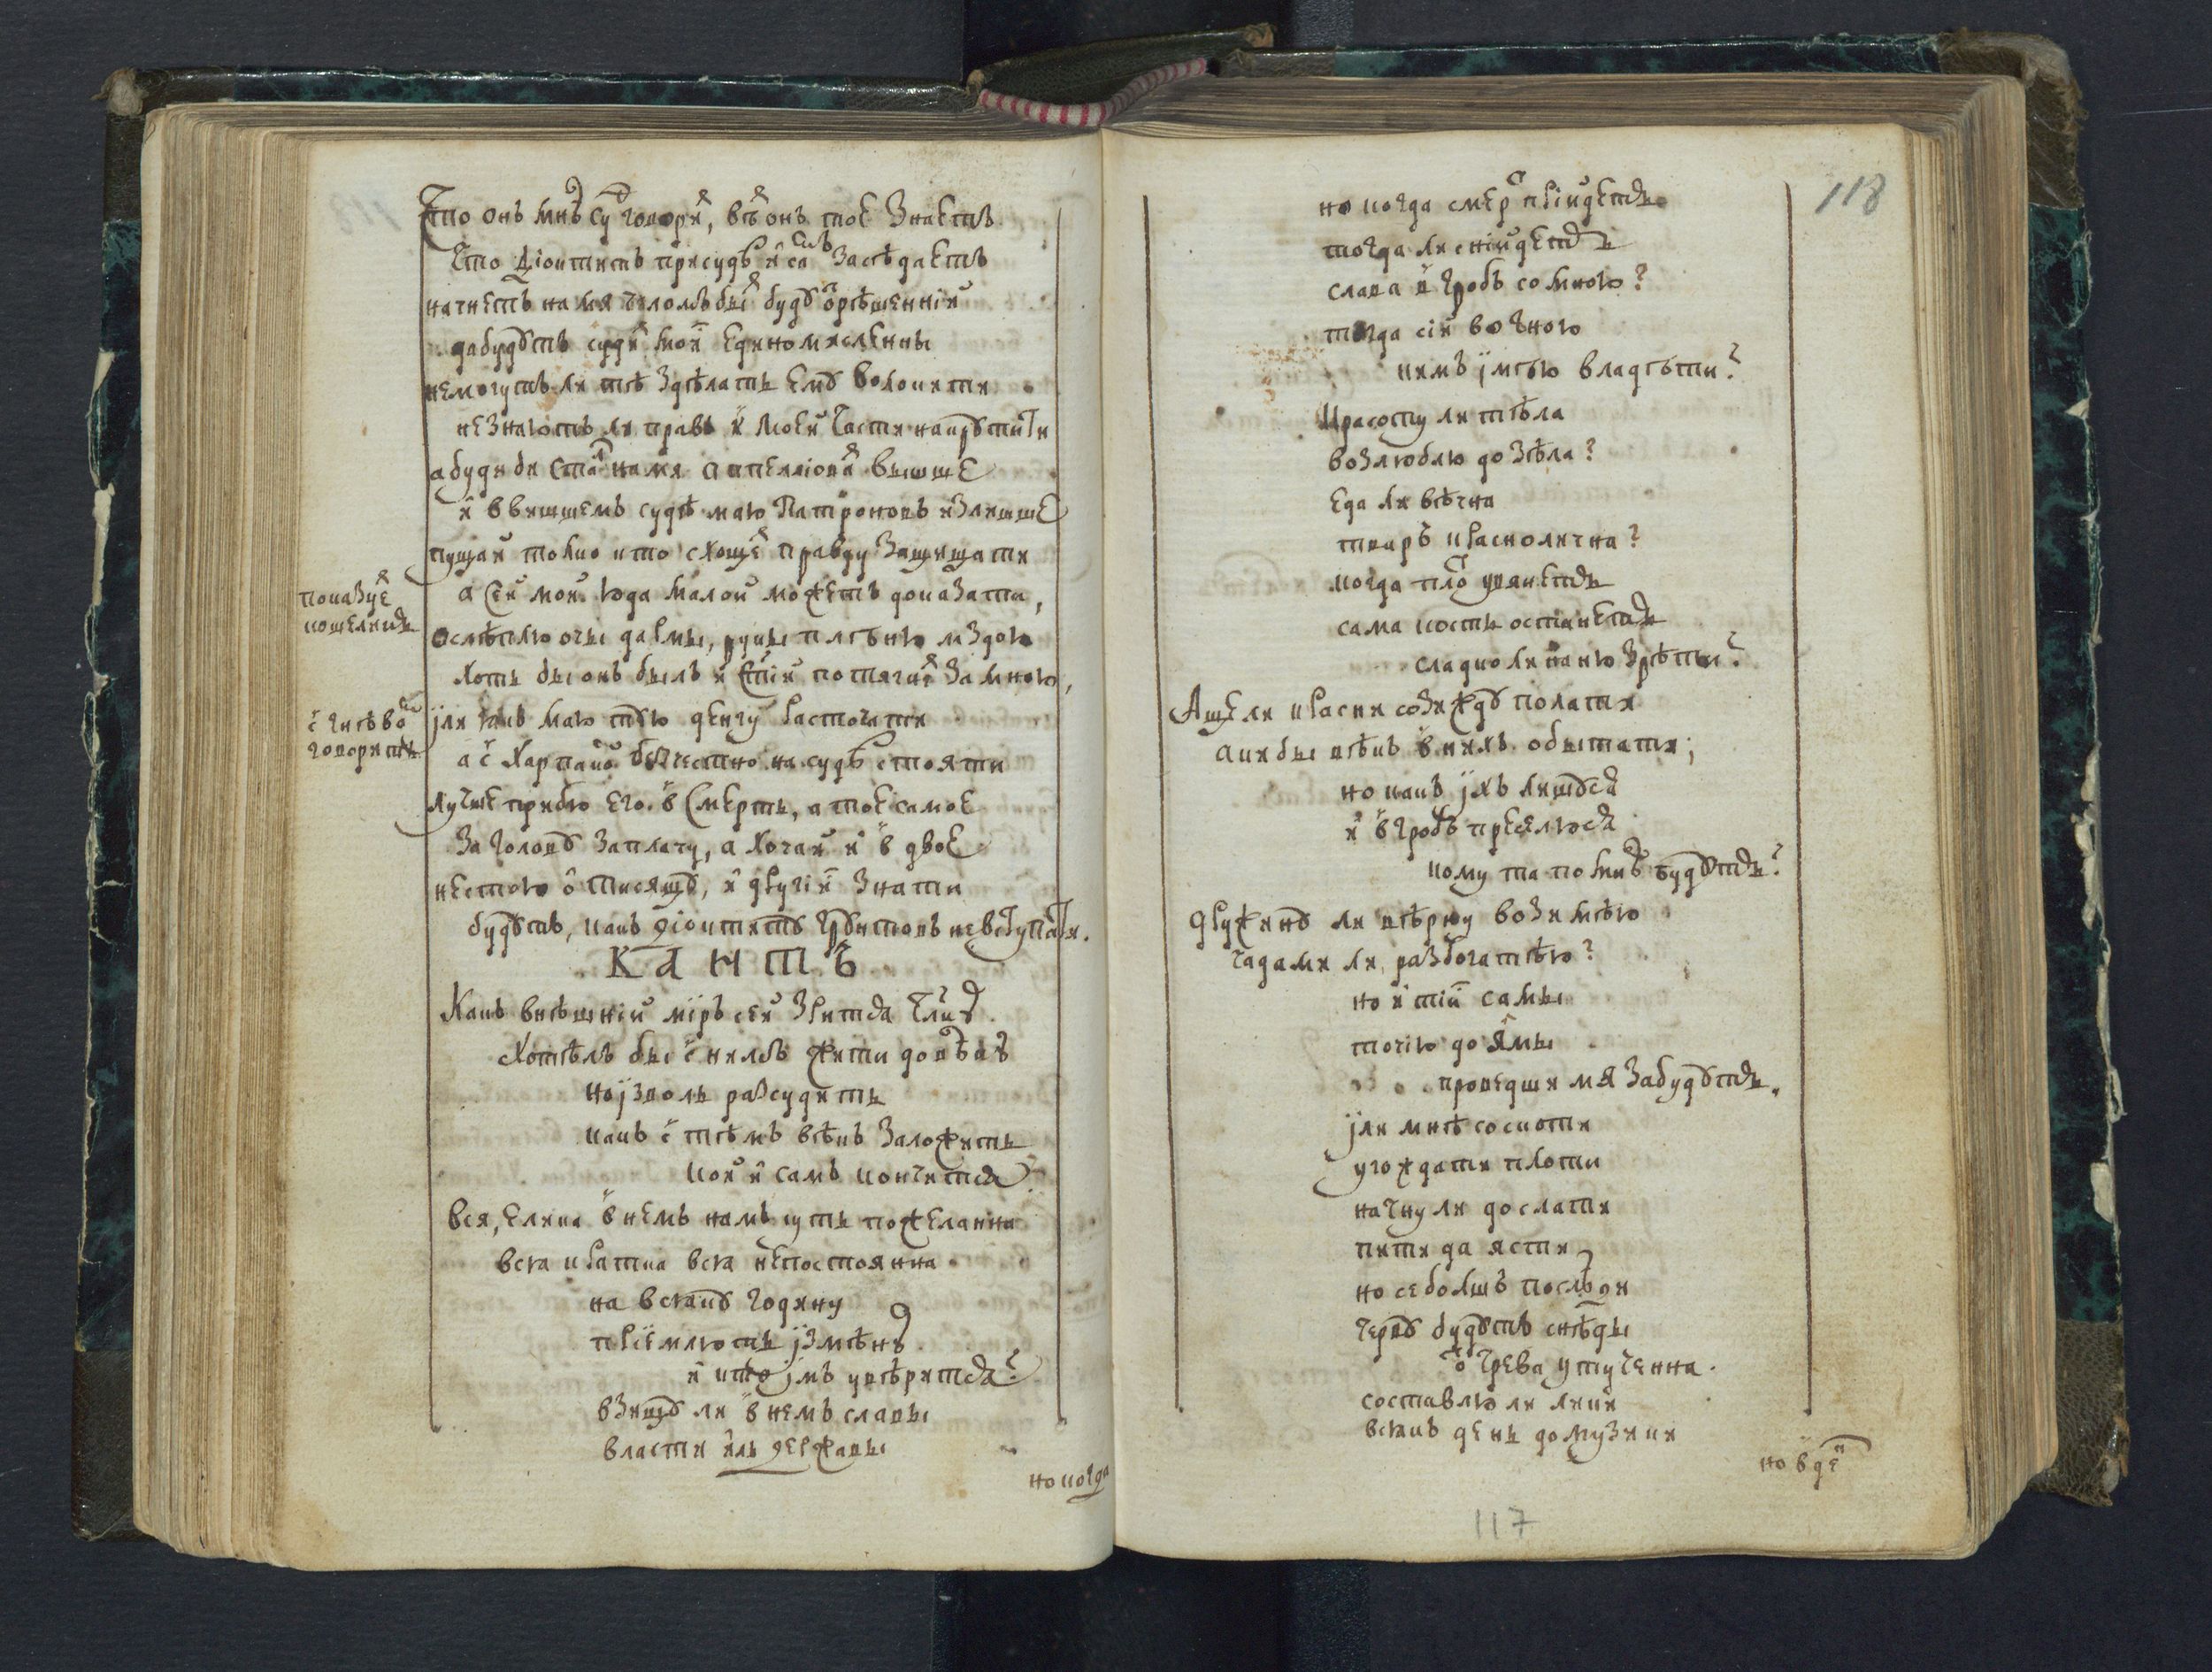 Что онъ мнѣ суд говорил, всѣ онъ тое знаетъ
Что Діоктитъ присудѣ и самъ засѣдаетъ
начнетъ на мя челомъ бы будъ орѣшенній
да будутъ судїи мои единомысленны
немогутъ ли тѣ здѣлать ему волокити
незнаютъ ли правъ к моей части накрутити
а буди би стал на мя аппелліовал вышше
и ввишшемъ судѣ маю Патроновъ излишше
пущай толко кто схощет правду защищати
а сей мой юда малой можетъ доказати,
показует
кошелилъ
ослѣплю очы дармы, руцы плѣню мздою
хоть бы онъ былъ и стїй потягнет за мною,
с гнѣвом
говоритъ
или какъ маю тую денгу расточати
а с харпаком безчестно на судѣ стояти
лучше прибю его в смерть, а тое самое
за голову заплачу, а хочай и в двое
нестою о тисящу, и другій знати
будутъ, какъ діоктиту грунтовъ невступати.
КАНТЪ
Какъ внѣшній міръ сей зрится члку
схотѣлъ бы с нимъ жити до вѣку
но изволь разсудить
какъ с тѣмъ вѣкъ заложить
кой и самъ кончится
вся, елика в немъ намъ суть пожеланна
вся кратка вся непостоянна
на всяку годину
пріемлють измѣну
и кто имъ увѣрится?
взищу ли в немъ славы
власти иль державы
но когда
118
но когда смерт пріидеть
тогда ли снійдеть
слава в гробъ со мною?
тогда сій вочною
кимъ имѣю владѣти?
Красоту ли тѣла
возлюблю до зѣла?
еда ли вѣчна
тваръ краснолична?
когда плот увянеть
сама кость останеть
сладко ли на ню зрѣти?
Аще ли красни созижду полати
аки бы вѣкъ в нихъ обытати;
но какъ ихъ лишуся
и в гробъ преселюся
кому та по мнѣ будуть?
Дружину ли вѣрну возимѣю
чадами ли, разбогатѣю?
но и тій самы
точію до ямы
проведши мя забудуть.
или мнѣ со скоти
угождати плоти
начну ли до слати
пити да ясти
но се болшъ послѣди
черву будутъ снѣды
от чрева утученна
составлю ли лики
всякъ день до музики
но в ден
117